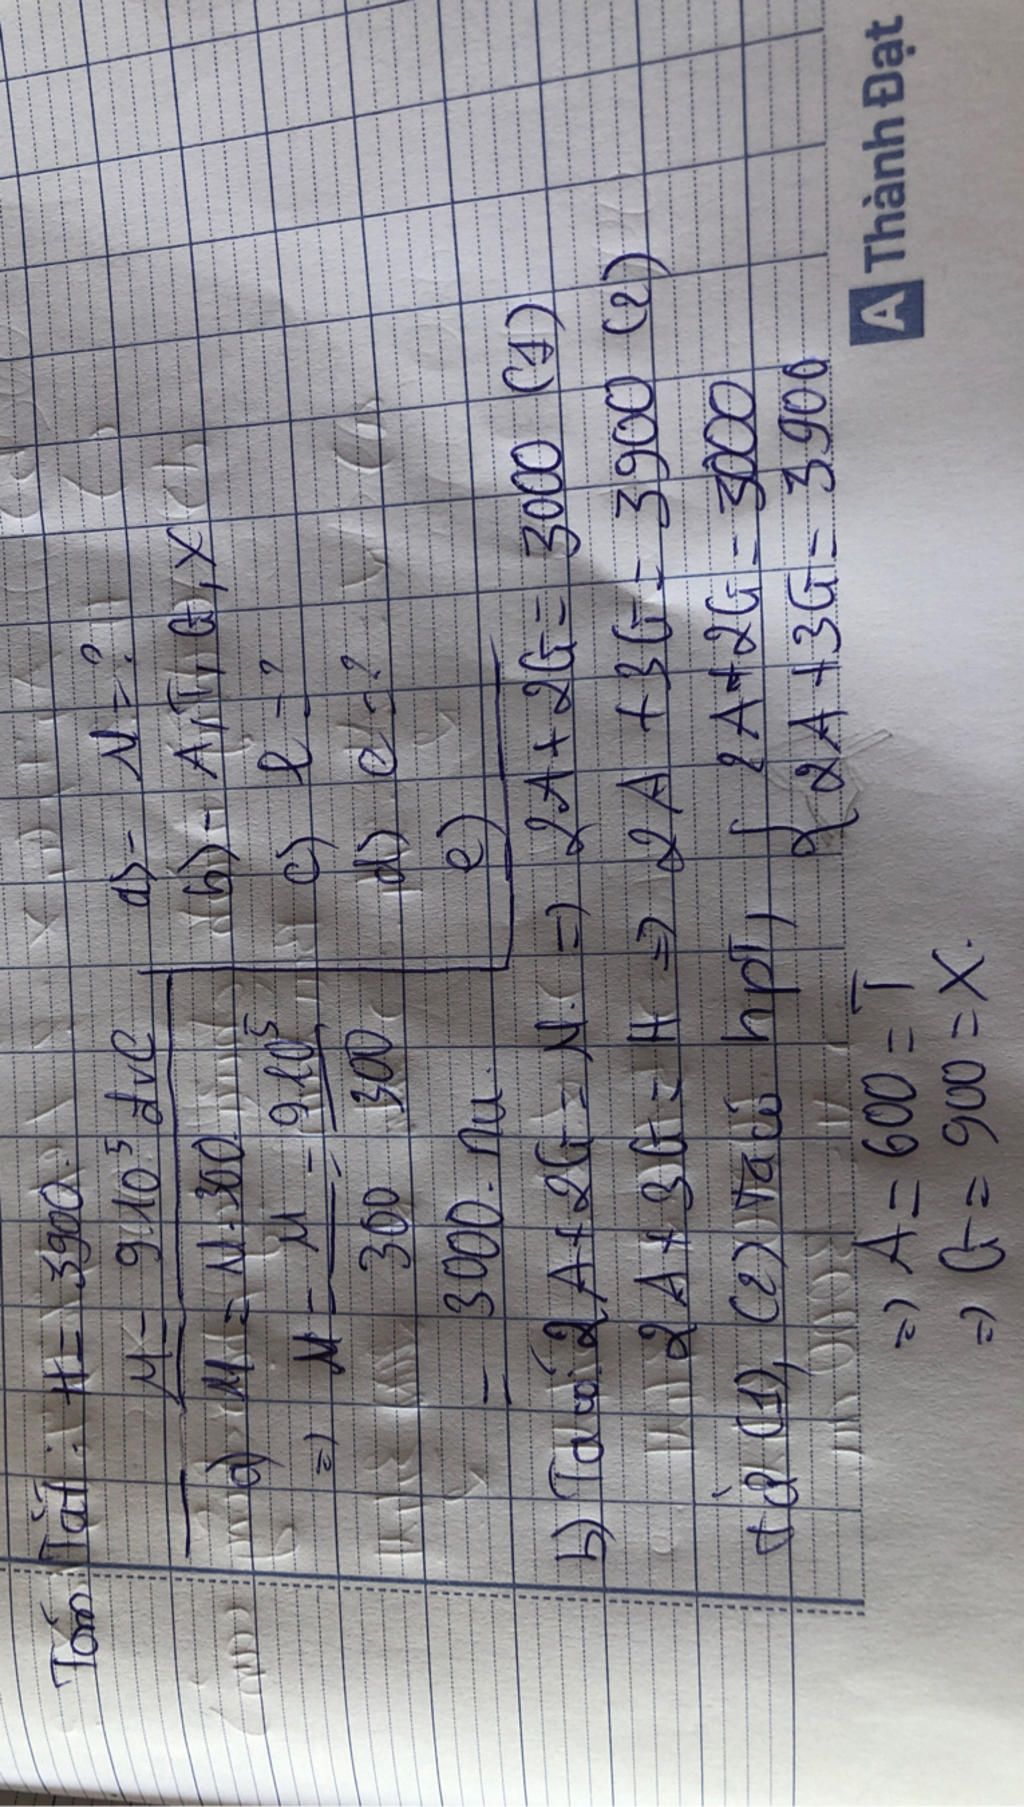 Tóm Tắt: H = 3900.
M = 9.10⁵ đvC
a) - N = ?
b) - A, T, G, X
c) l = ?
d) C = ?
e)
a) M = N.300
=) N = M/300 = 9.10⁵/300
= 3000.nu.
b) Ta có: 2A + 2G = N. =) 2A + 2G = 3000 (1)
2A + 3G = H =) 2A + 3G = 3900 (2)
từ (1), (2) Ta có hpt, { 2A + 2G = 3000
2A + 3G = 3900
=) A = 600 = T
=) G = 900 = X.
A Thành Đạt